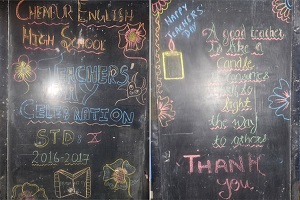 CHEMBUR ENGLISH
HIGH SCHOOL
TEACHERS'
DAY
CELEBRATION
STD: X
2016-2017
HAPPY
TEACHERS'
DAY
A good teacher
Is like a
Candle
It consumes
itself to
light
the way
to others
THANK
you